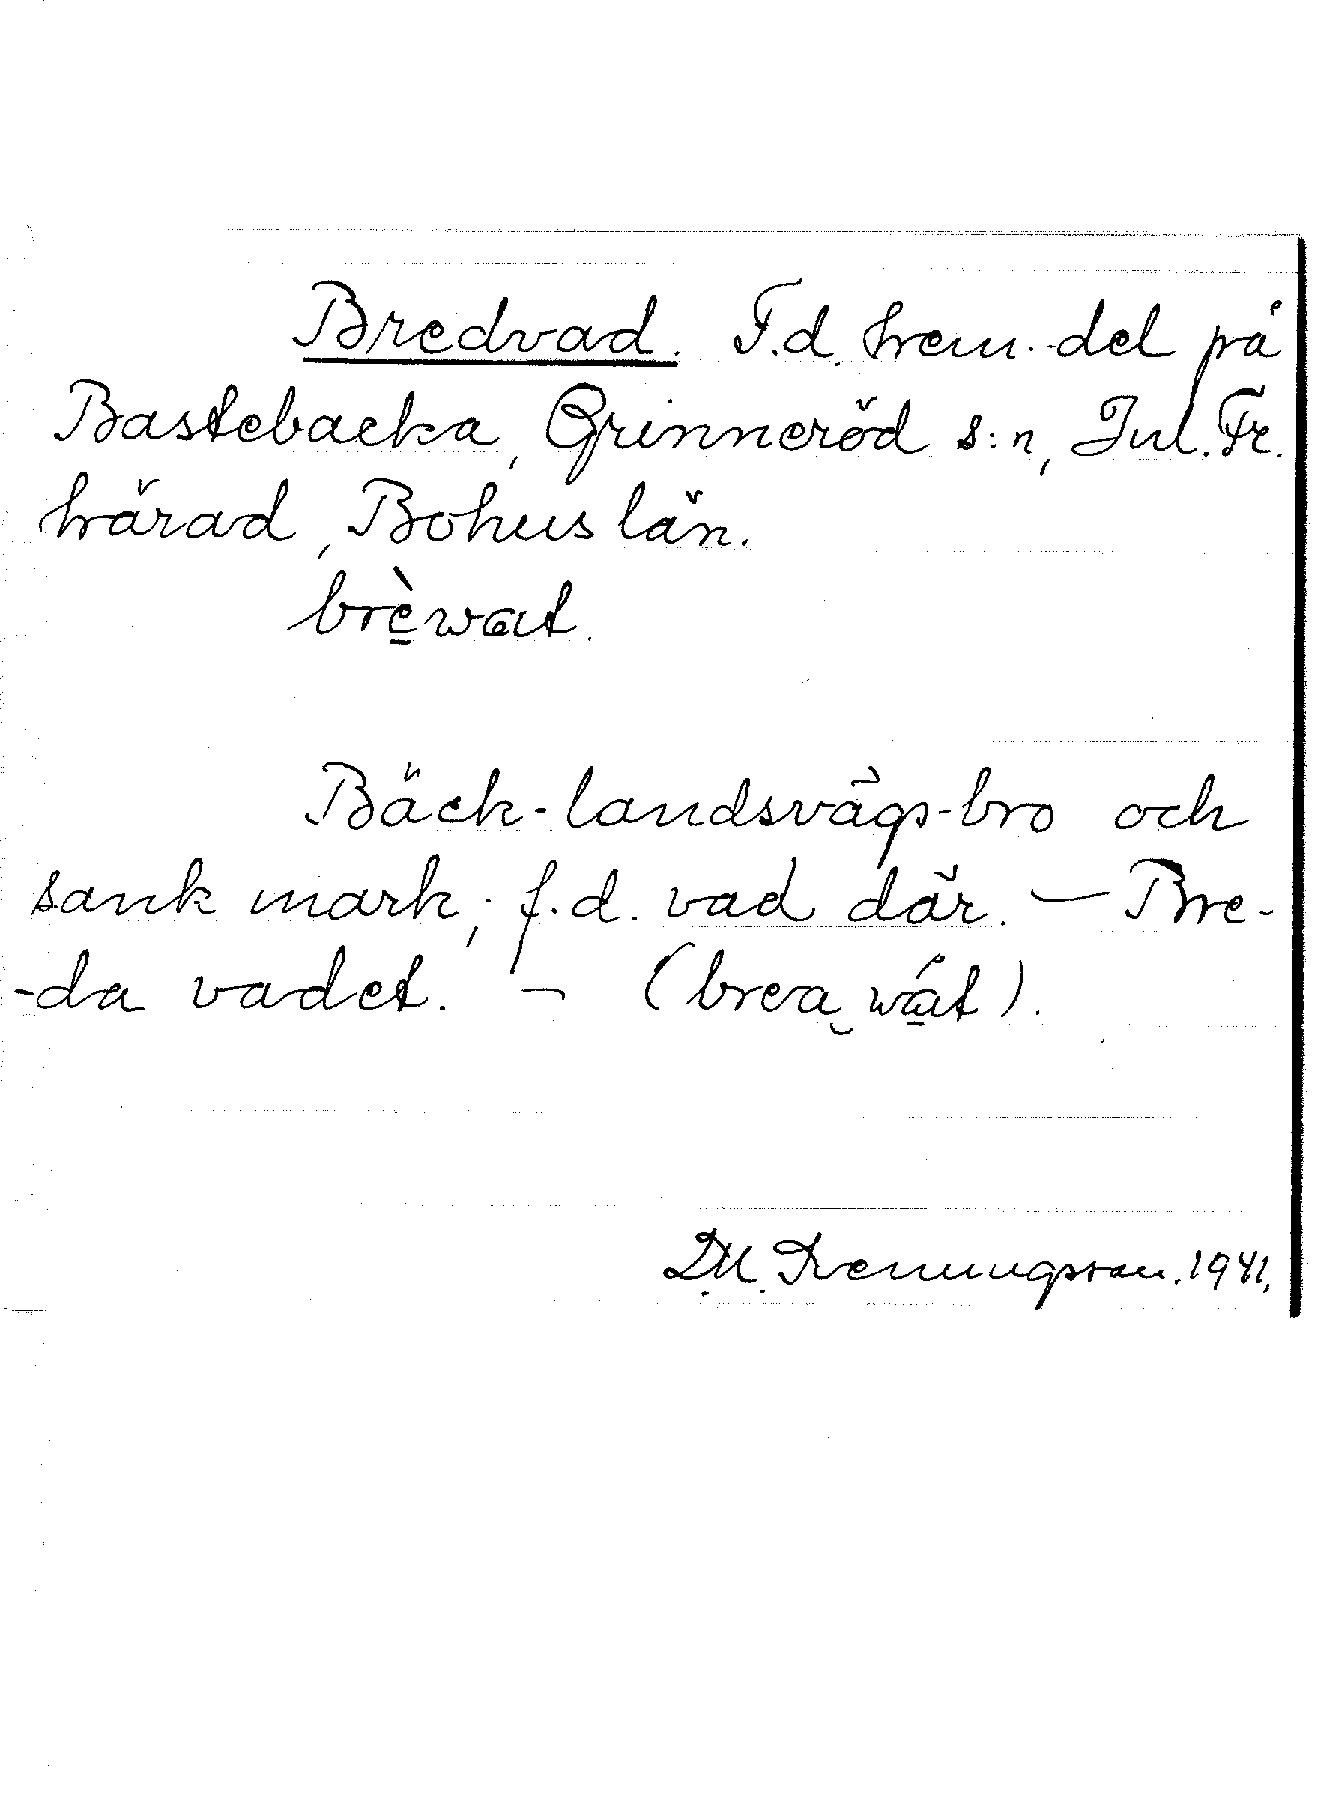 Bredvad. F.d. hem.-del på
Bastebacka, Grinneröd s:n, Inl. Fr.
härad, Bohuslän.
brèwat.
Bäck-landsvägs-bro och
sank mark; f.d. vad där. — Bre-
-da vadet. — (brea wát).
D.M. Hemmingsson. 1941.